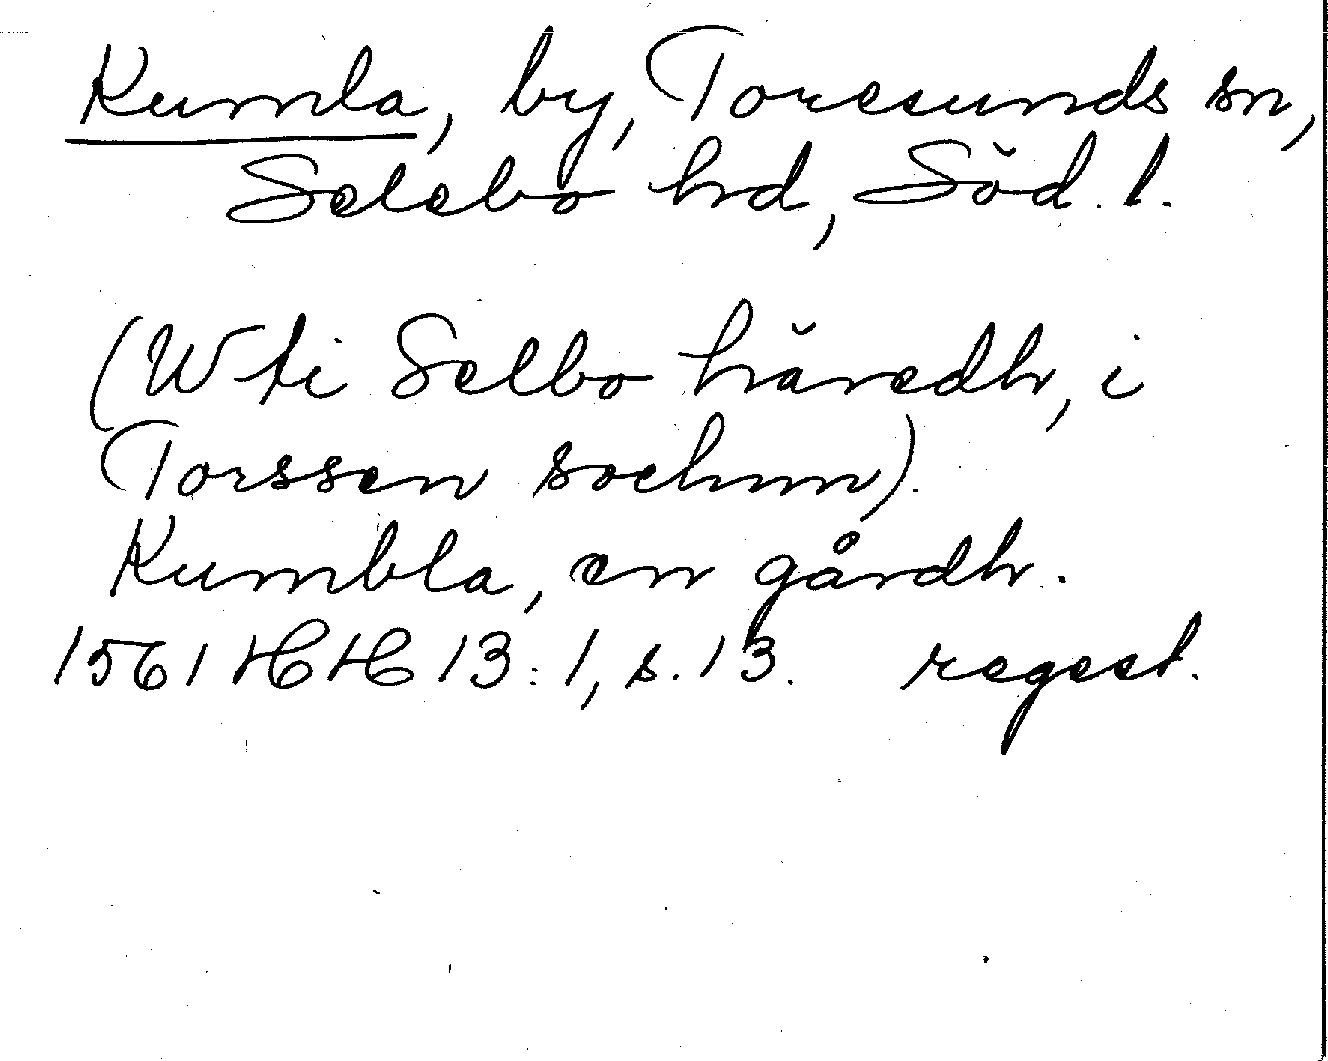 Kumla, by, Toresunds sn,
Selebo hd, Söd. l.
(Wti Selbo häredh, i
Torssen sochnn).
Kumbla, en gårdh.
1561 HH 13:1, s. 13. regest.